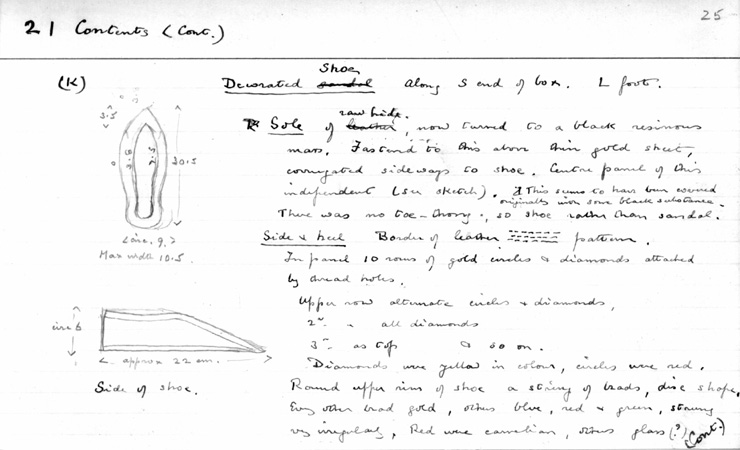 25
21 Contents (Cont.)
(K)
Shoe
Decorated sandal along S end of box. L foot.
raw hide.
Sole of leather, now turned to a black resinous
mass. Fastened to this above thin gold sheet,
corrugated sideways to shoe. Centre panel of this
independent (see sketch). This seems to have been covered
originally with some black substance.
There was no toe-thong, so shoe rather than sandal.
Side & heel Border of leather pattern.
In panel 10 rows of gold circles & diamonds attached
by thread holes.
Upper row alternate circles & diamonds,
2nd " all diamonds
3rd as top & so on.
Diamonds were yellow in colour, circles were red.
Round upper rim of shoe a string of beads, disc shape,
Every other bead gold, others blue, red & green, strung
very irregularly. Red were carnelian, others glass (?)
(Cont.)
3.5
20.5
Circ. 9.
Max width 10.5.
circ 6
approx 22 cm.
Side of shoe.